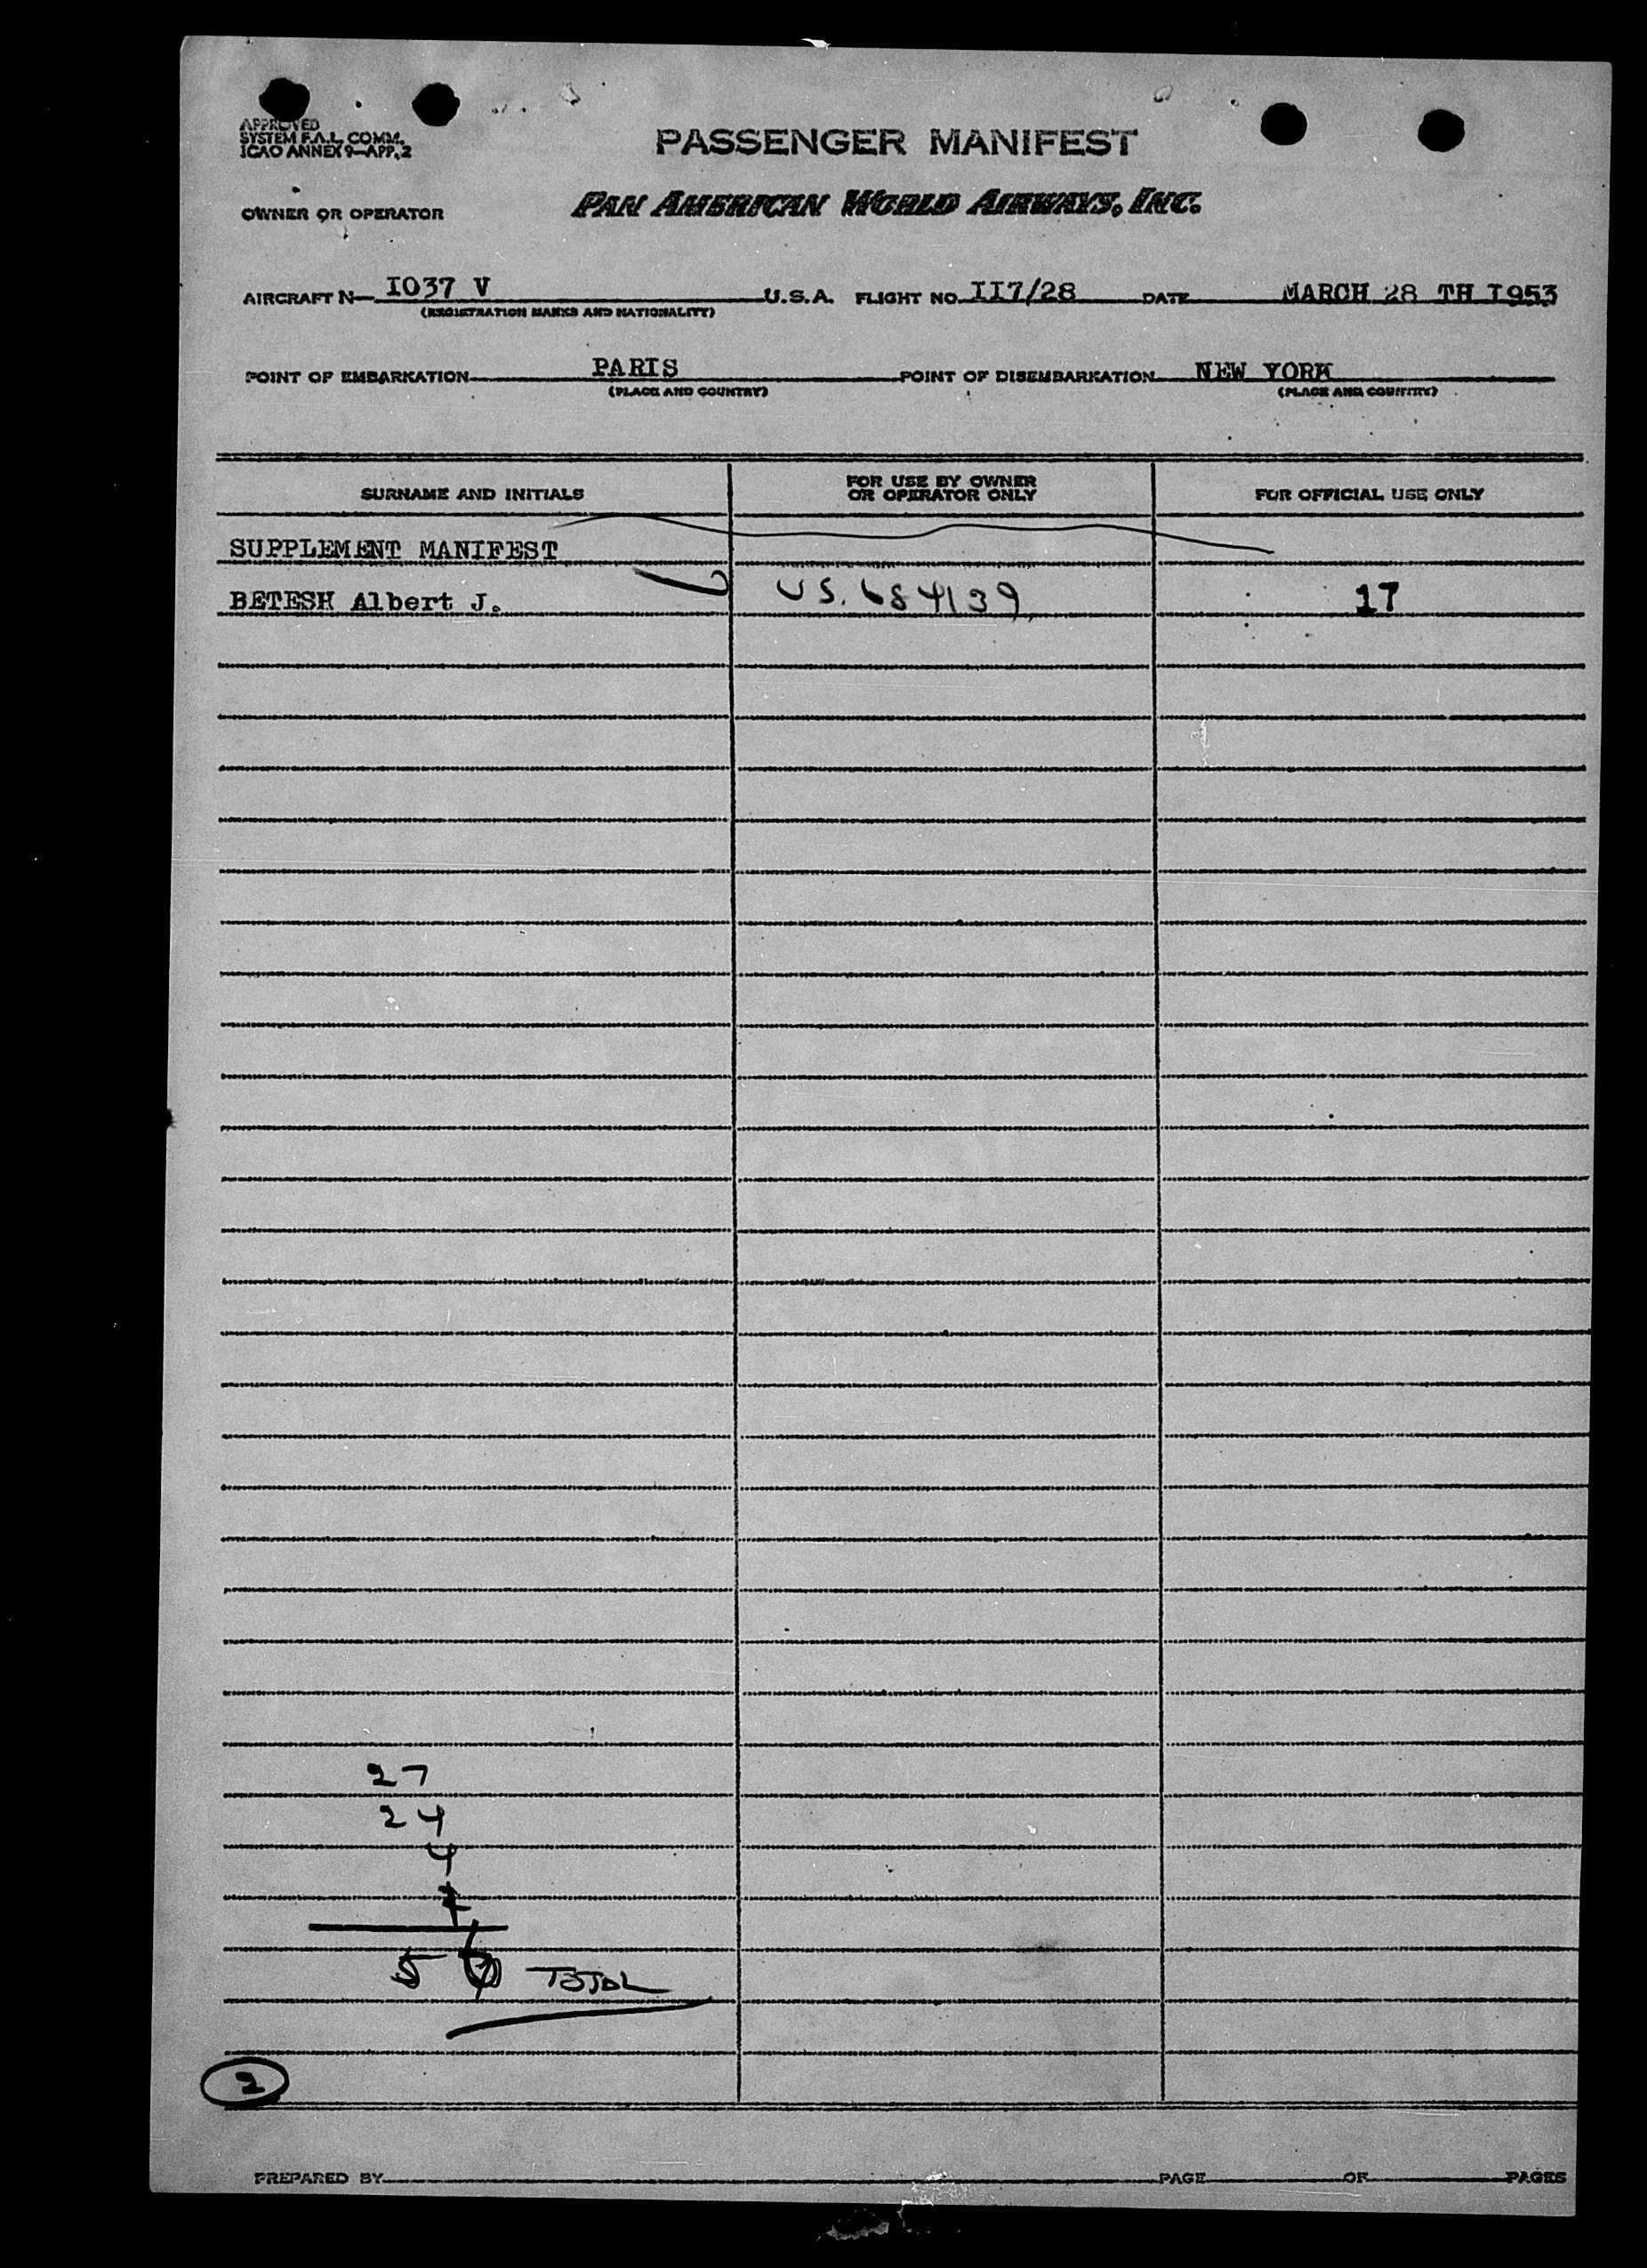 APPROVED
SYSTEM F.A.L. COMM.
ICAO ANNEX 9—APP. 2
PASSENGER MANIFEST
OWNER OR OPERATOR PAN AMERICAN WORLD AIRWAYS, INC.
AIRCRAFT N— I037 V U.S.A. FLIGHT NO. II7/28 DATE MARCH 28 TH I953
(REGISTRATION MARKS AND NATIONALITY)
POINT OF EMBARKATION PARIS POINT OF DISEMBARKATION NEW YORK
(PLACE AND COUNTRY) (PLACE AND COUNTRY)
SURNAME AND INITIALS FOR USE BY OWNER OR OPERATOR ONLY FOR OFFICIAL USE ONLY
SUPPLEMENT MANIFEST
BETESH Albert J. US. 684139 17
27
24
4
5 TOTAL
2
PREPARED BY PAGE OF PAGES